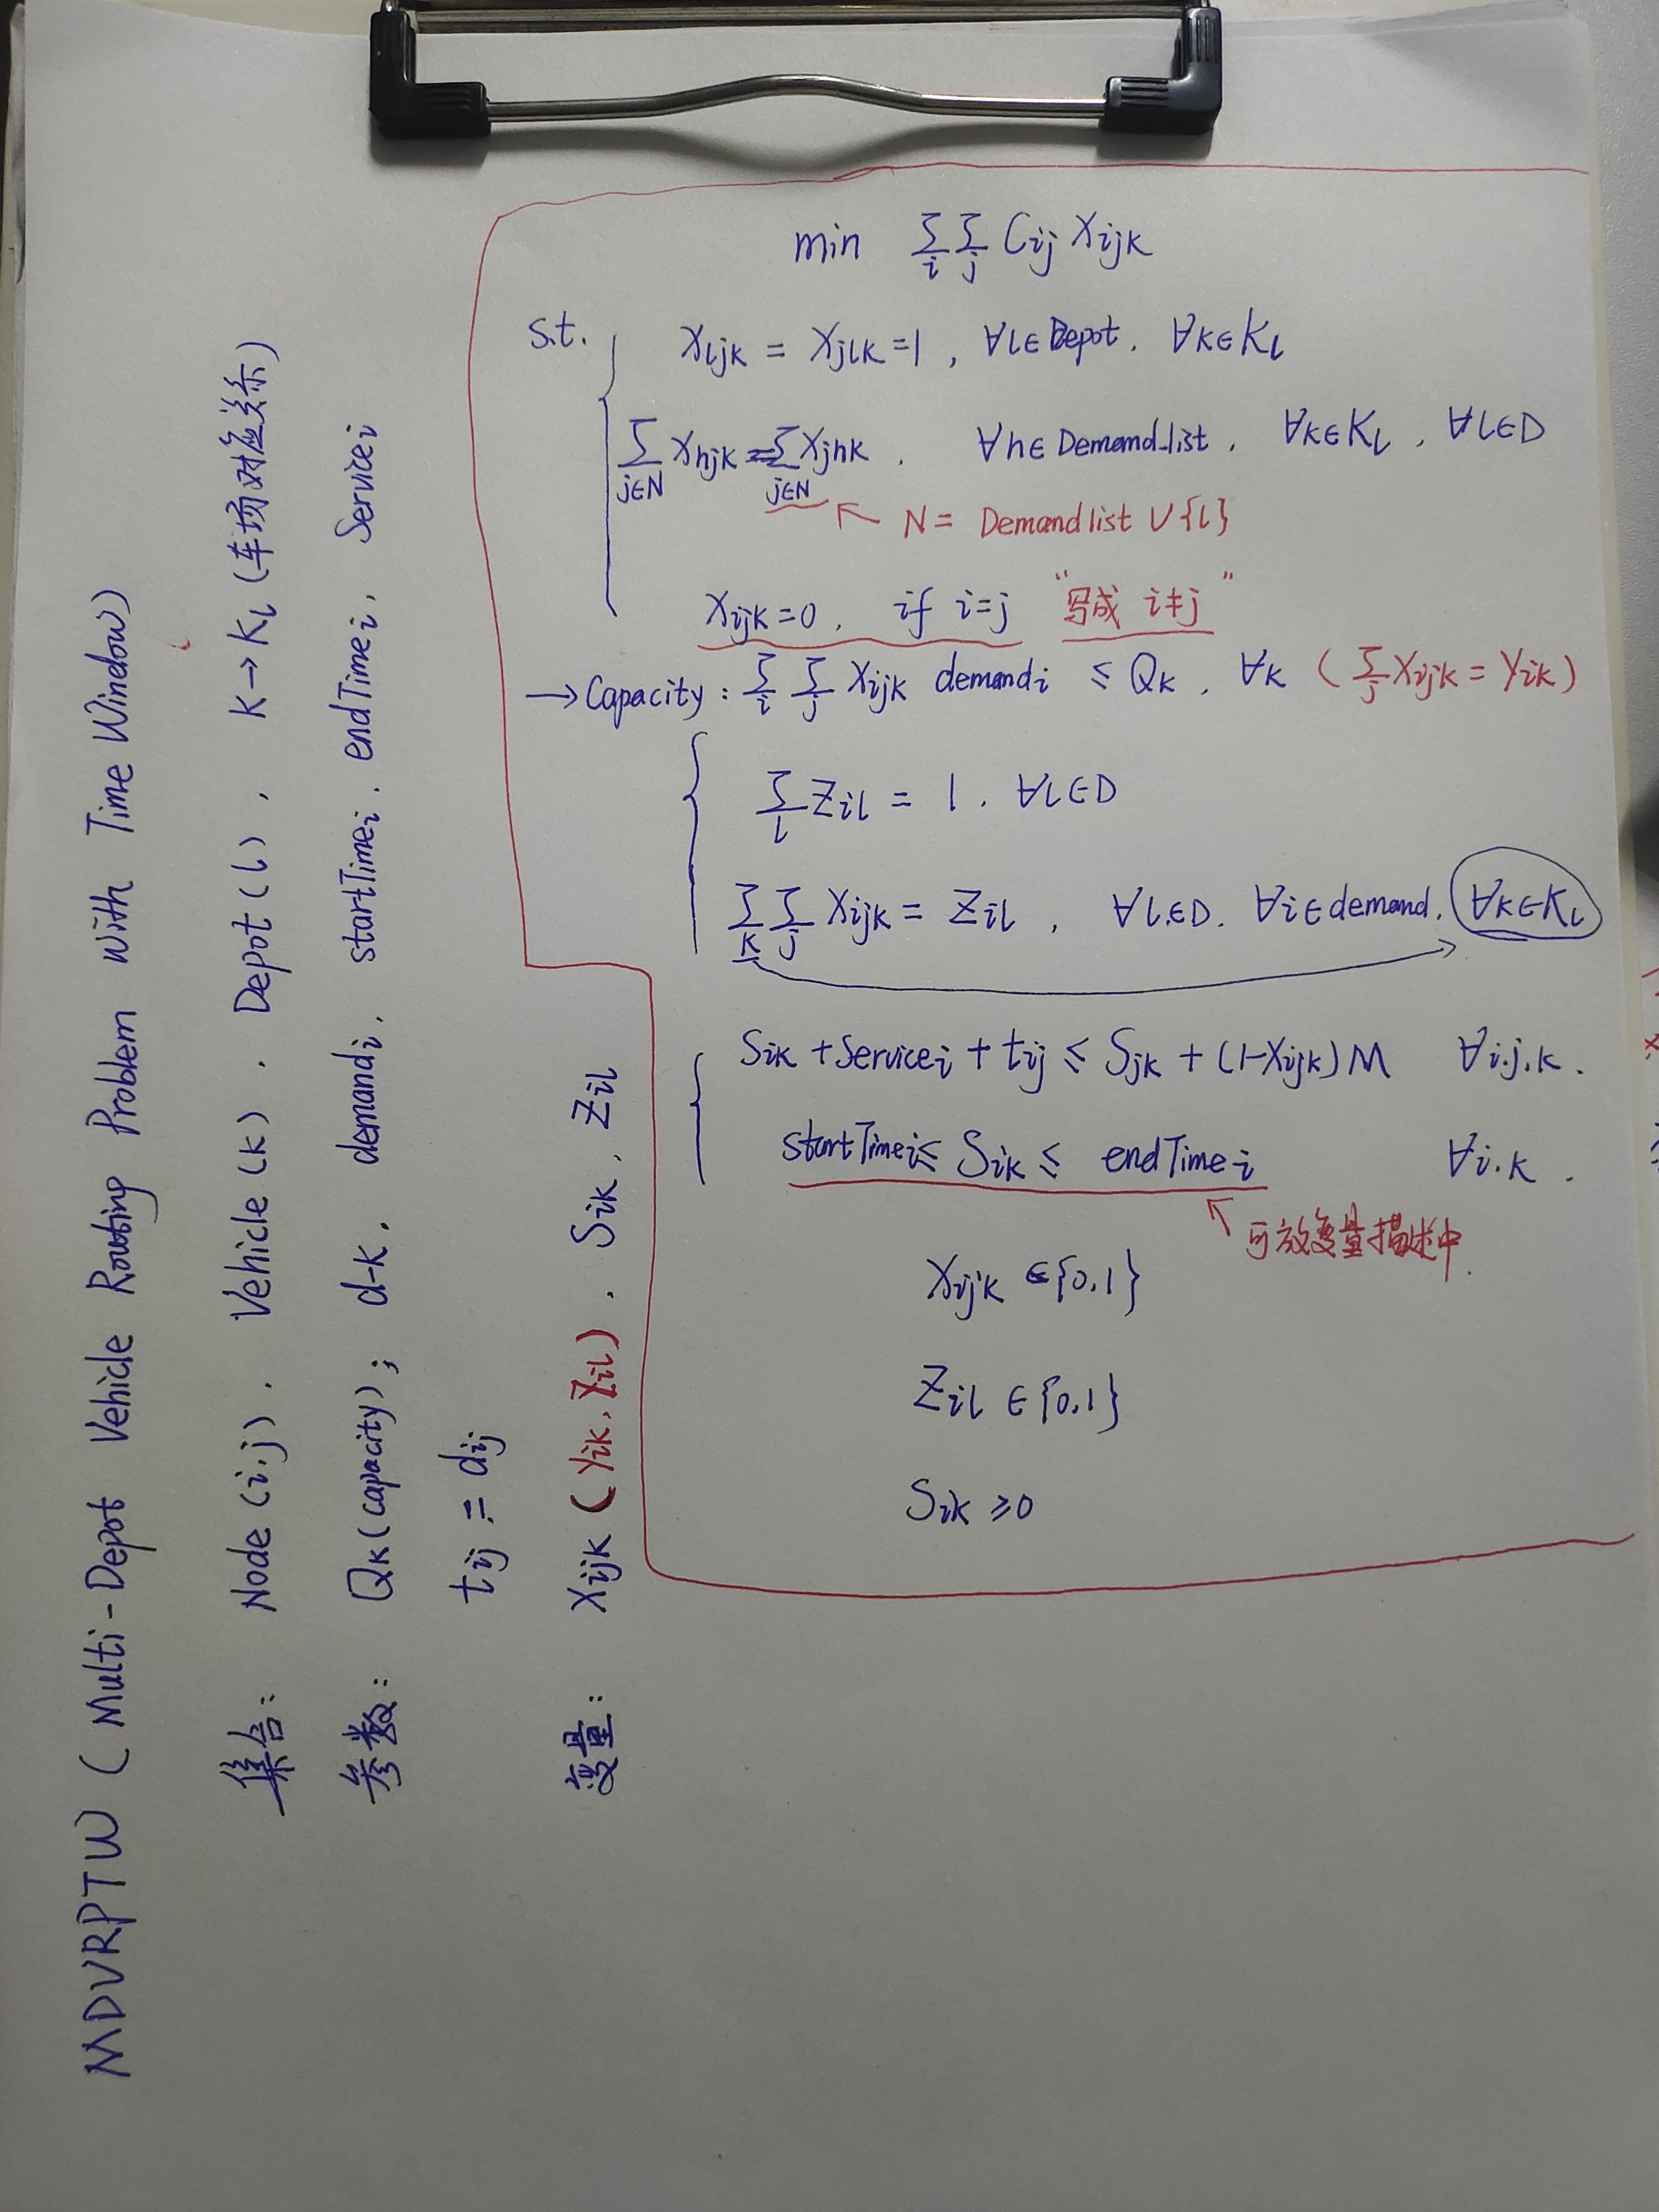 MDVRPTW (Multi-Depot Vehicle Routing Problem with Time Window)
集合: Node(i.j). Vehicle(k). Depot(l). K→K_l(车场对应关系)
参数: Q_k(capacity); d-k. demand_i. startTime_i. endTime_i. Service_i
t_ij = d_ij
变量: X_ijk (y_ik. Z_il). S_ik. Z_il
min ∑_i ∑_j C_ij X_ijk
s.t. X_ljk = X_jlk = 1, ∀l∈Depot. ∀k∈K_l
∑_{j∈N} X_hjk = ∑_{j∈N} X_jhk. ∀h∈Demand_list. ∀k∈K_l. ∀l∈D
N = Demandlist ∪ {l}
X_ijk = 0. if i=j "写成 i≠j"
→ Capacity: ∑_i ∑_j X_ijk demand_i ≤ Q_k. ∀k (∑_j X_ijk = Y_ik)
∑_l Z_il = 1. ∀l∈D
∑_k ∑_j X_ijk = Z_il, ∀l∈D. ∀i∈demand. ∀k∈K_l
S_ik + Service_i + t_ij ≤ S_jk + (1-X_ijk)M ∀i.j.k.
startTime_i ≤ S_ik ≤ endTime_i ∀i.k.
可放变量描述中.
X_ijk ∈{0,1}
Z_il ∈{0,1}
S_ik ≥0